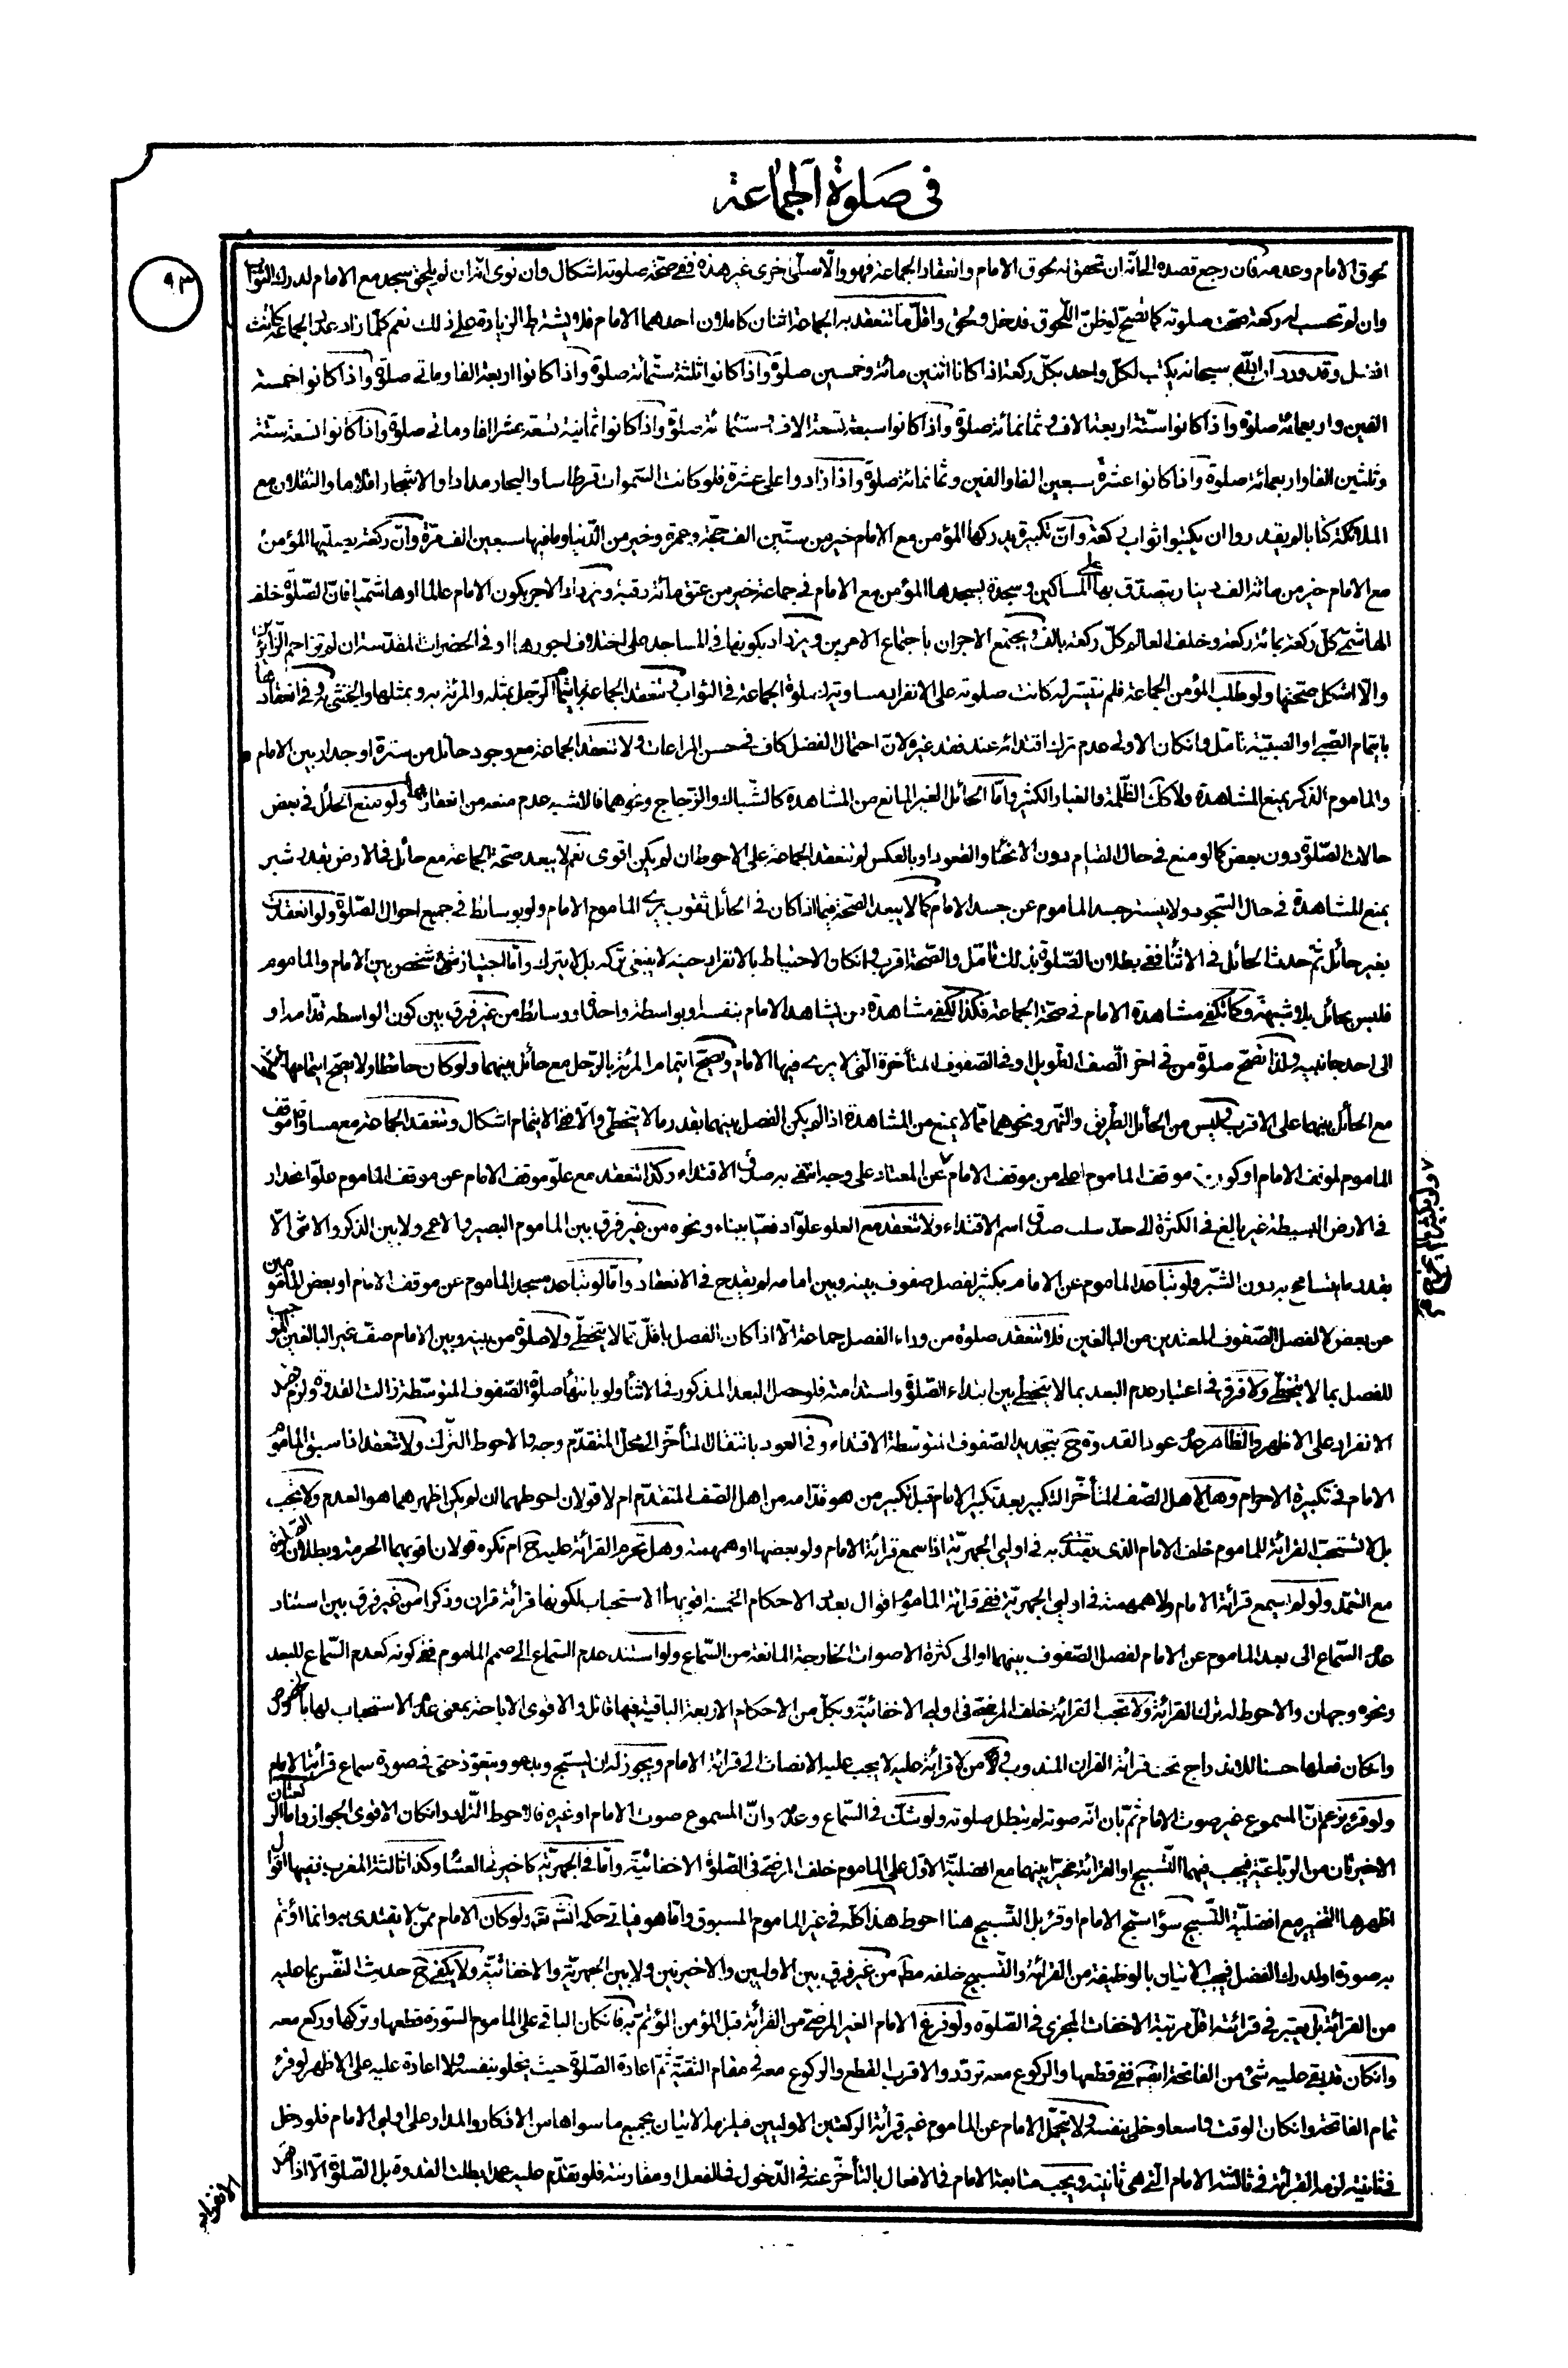 فى صلوة الجماعة
٩٣
لحوق الامام وعدمه فان رجع قصده الى انه ان تحقق له لحوق الامام وانعقاد الجماعة فهو والّا صلّى اخرى غير هذه ففى صحّة صلوته اشكال وان نوى انه ان لم يلحق سجد مع الامام لدرك الثواب
وان لم تحسب له ركعة صحّت صلوته كما تصحّ لو ظنّ اللّحوق فدخل ولحق واقلّ ما تنعقد به الجماعة اثنان كاملان احدهما الامام فلا يشترط الزيادة على ذلك نعم كلّما زاد عدد الجماعة كانت
افضل وقد ورد ان اللّه سبحانه يكتب لكلّ واحد بكلّ ركعة اذا كانا اثنين مائة وخمسين صلوة واذا كانوا ثلثة ستّمائة صلوة واذا كانوا اربعة الفا وماتى صلوة واذا كانوا خمسة
الفين واربعمائة صلوة واذا كانوا ستّة اربعة الاف وثمانمائة صلوة واذا كانوا سبعة تسعة الاف وستّمائة صلوة واذا كانوا ثمانية تسعة عشر الفا وماتى صلوة واذا كانوا تسعة ستّة
وثلثين الفا واربعمائة صلوة واذا كانوا عشرة سبعين الفا والفين وثمانمائة صلوة واذا زادوا على عشرة فلو كانت السّموات قرطاسا والبحار مدادا والاشجار اقلاما والثقلان مع
الملائكة كتّابا لم يقدروا ان يكتبوا ثواب ركعة وانّ تكبيرة يدركها المؤمن مع الامام خير من ستّين الف حجّة وعمرة وخير من الدّنيا وما فيها سبعين الف مرّة وانّ ركعة يصلّيها المؤمن
مع الامام خير من مائة الف دينار يتصدّق بها على المساكين وسجدة يسجدها المؤمن مع الامام فى جماعة خير من عتق مائة رقبة ويزداد الاجر بكون الامام عالما او هاشميّا فانّ الصّلوة خلف
الهاشمى كلّ ركعة بمائة ركعة وخلف العالم كلّ ركعة بالف ويجتمع الاجران باجتماع الامرين ويزداد بكونها فى المساجد على اختلاف اجورها او فى الحضرات المقدّسة ان لم تزاحم الزّائرين
والّا اشكل صحّتها ولو طلب المؤمن الجماعة فلم تتيسّر له كانت صلوته على الانفراد مساوية لصلوة الجماعة فى الثواب وتنعقد الجماعة بايتمام الرّجل بمثله والمرئة به وبمثلها والخنثى به وفى انعقادها
بايتمام الصّبى او الصّبيّة تامّل وان كان الاولى عدم ترك اقتدائه عند فقد غيره لانّ احتمال الفضل كاف فى حسن المراعات ولا تنعقد الجماعة مع وجود حائل من سترة او جدار بين الامام و
والماموم الذكر يمنع المشاهدة وكذلك الظّلمة والغبار الكثير وامّا الحائل الغير المانع من المشاهدة كالشّباك والزّجاج ونحوهما فالاشبه عدم منعه من انعقادها ولو منع الحائل فى بعض
حالات الصّلوة دون بعض كما لو منع فى حال القيام دون الانحناء والقعود او بالعكس لم تنعقد الجماعة على الاحوط ان لم يكن اقوى نعم لا يبعد صحّة الجماعة مع حائل فى الارض بقدر شبر
يمنع المشاهدة فى حال السّجود ولا يستر جسد الماموم عن جسد الامام كما لا يبعد الصّحة فيما اذا كان فى الحائل ثقوب يرى الماموم الامام ولو بوسائط فى جميع احوال الصّلوة ولو انعقدت
بغير حائل ثمّ حدث الحائل فى الاثناء ففى بطلان الصّلوة بذلك تامّل والصّحة اقرب وان كان الاحتياط بالانفراد حينه لا ينبغى تركه بل لا يترك وامّا اجتياز شخص بين الامام والماموم
فليس بحائل بلا شبهة وكما تكفى مشاهدة الامام فى صحّة الجماعة فكذا تكفى مشاهدة من يشاهد الامام بنفسه او بواسطة واحدة او وسائط من غير فرق بين كون الواسطة قدّامه او
الى احد جانبيه ولذا تصحّ صلوة من فى اخر الصّف الطّويل او فى الصّفوف المتأخرة الّتى لا يرى فيها الامام ويصحّ ايتمام المرئة بالرّجل مع حائل بينهما ولو كان حائطا ولا يصحّ ايتمامها بالخنثى
مع الحائل بينهما على الاقرب وليس من الحائل الطّريق والنّهر ونحوهما ممّا لا يمنع من المشاهدة اذا لم يكن الفصل بينهما بقدر ما لا يتخطّى والّا ففى الايتمام اشكال وتنعقد الجماعة مع مساواة موقف
الماموم لموقف الامام او كون موقف الماموم اعلى من موقف الامام عن المعتاد على وجه انتفى به صدق الاقتداء وكذا تنعقد مع علوّ موقف الامام عن موقف الماموم علوّ انحدار
فى الارض البسيطة غير بالغ فى الكثرة الى حدّ سلب صدق اسم الاقتداء ولا تنعقد مع العلو علوّا دفعيّا ببناء ونحوه من غير فرق بين الماموم البصير والاعمى ولا بين الذكر والانثى الّا
بقدر ما يتسامح به بدون الشّبر ولو تباعد الماموم عن الامام بكثير لفصل صفوف بينه وبين امامه لم يقدح فى الانعقاد وامّا لو تباعد مسجد الماموم عن موقف الامام او بعض المامومين
عن بعض لا لفصل الصّفوف المعتدين من البالغين فلا تنعقد صلوة من وراء الفصل جماعة الّا اذا كان الفصل باقلّ ممّا لا يتخطّى ولا صلوة من بينه وبين الامام صفّ غير البالغين الموجب
للفصل بما لا يتخطّى ولا فرق فى اعتبار عدم البعد بما لا يتخطى بين ابتداء الصّلوة واستدامته فلو حصل البعد المذكور فى الاثناء ولو بانتهاء صلوة الصّفوف المتوسّطة زالت القدوة ولزم قصد
الانفراد على الاظهر والظاهر عدم عود القدوة ح بتجديد الصّفوف المتوسّطة الاقتداء وفى العود بانتقال المتأخّر الى محلّ المتقدّم وجه والاحوط التّرك ولا تنعقد اذا سبق الماموم
الامام فى تكبيرة الاحرام وهل لاهل الصّف المتأخّر التكبير بعد تكبير الامام قبل تكبير من هو قدّامه من اهل الصّف المتقدّم ام لا قولان احوطهما ان لم يكن اظهرهما هو العدم ولا تجب
بل لا تستحبّ القرائة للماموم خلف الامام الذى يقتدى به فى اوليى الجهريّة اذا سمع قرائة الامام ولو بعضها او همهمته وهل تحرم القرائة عليه ح ام تكره قولان اقويهما الحرمة وبطلان الصّلوة
مع التعمّد ولو لم يسمع قرائة الامام ولا همهمته فى اوليى الجهريّة ففى قرائة الماموم اقوال بعدد الاحكام الخمسة اقويها الاستحباب لكونها قرائة قران وذكرا من غير فرق بين استناد
عدم السّماع الى بعد الماموم عن الامام لفصل الصّفوف بينهما او الى كثرة الاصوات الخارجة المانعة من السّماع ولو استند عدم السّماع الى صمم الماموم ففى كونه كعدم السّماع للبعد
ونحوه وجهان والاحوط له ترك القرائة ولا تجب القرائة خلف المرضىّ فى اوليى الاخفائيّة وبكلّ من الاحكام الاربعة الباقية فيها قائل والاقوى الاباحة بمعنى عدم الاستحباب لها بالخصوص
وان كان فعلها حسنا للاندراج تحت قرائة القران المندوب وكلّ من لا قرائة عليه لا يجب عليه الانصات الى قرائة الامام ويجوز له ان يسبّح ويدعو ويتعوّذ حتى فى صورة سماع قرائة الامام
ولو قرء بزعم انّ المسموع غير صوت الامام ثمّ بان انّه صوته لم تبطل صلوته ولو شكّ فى السّماع وعدمه وانّ المسموع صوت الامام او غيره فالاحوط التّرك وان كان الاقوى الجواز وامّا الركعتان
الاخيرتان من الرّباعيّة فيجب فيهما التّسبيح او القرائة مخيّرا بينهما مع افضليّة الاوّل على الماموم خلف المرضىّ فى الصّلوة الاخفائيّة وامّا فى الجهريّة كاخيرتى العشاء وكذا ثالثة المغرب ففيها اقوال
اظهرها التخيير مع افضليّة التّسبيح سواء سبّح الامام او قرء بل التّسبيح هنا احوط هذا كلّه فى غير الماموم المسبوق وامّا هو فياتى حكمه انش تعالى ولو كان الامام ممّن لا يقتدى به وانما اؤتمّ
به صورة او لدرك الفضل فيجب الاتيان بالوظيفة من القرائة والتّسبيح خلفه مطلقا من غير فرق بين الاوليين والاخيرتين ولا بين الجهريّة والاخفائيّة ولا يكفى ح حديث النّفس بما عليه
من القرائة بل يعتبر فى قرائته اقلّ مرتبة الاخفات المجزى فى الصّلوة ولو فرغ الامام الغير المرضىّ من القرائة قبل المؤمن المؤتمّ به فان كان الباقى على الماموم السّورة قطعها وتركها وركع معه
وان كان قد بقى عليه شئ من الفاتحة ايضا ففى قطعها والركوع معه تردّد والاقرب القطع والركوع معه فى مقام التقيّة ثمّ اعادة الصّلوة حيث يخلو بنفسه ولا اعادة عليه على الاظهر لو قرء
تمام الفاتحة وان كان الوقت واسعا وخلى بنفسه ولا يتحمّل الامام عن الماموم غير قرائة الركعتين الاوليين فيلزمه الاتيان بجميع ما سواها من الاذكار والمدار على اوليى الامام فلو دخل
فى ثانيته لزمه القرائة فى ثالثة الامام الّتى هى ثانيته ويجب متابعة الامام فى الافعال بالتأخّر عنه فى الدّخول فى الفعل او مقارنته فلو تقدّم عليه عمدا بطلت القدوة بل الصّلوة الّا اذا قصد